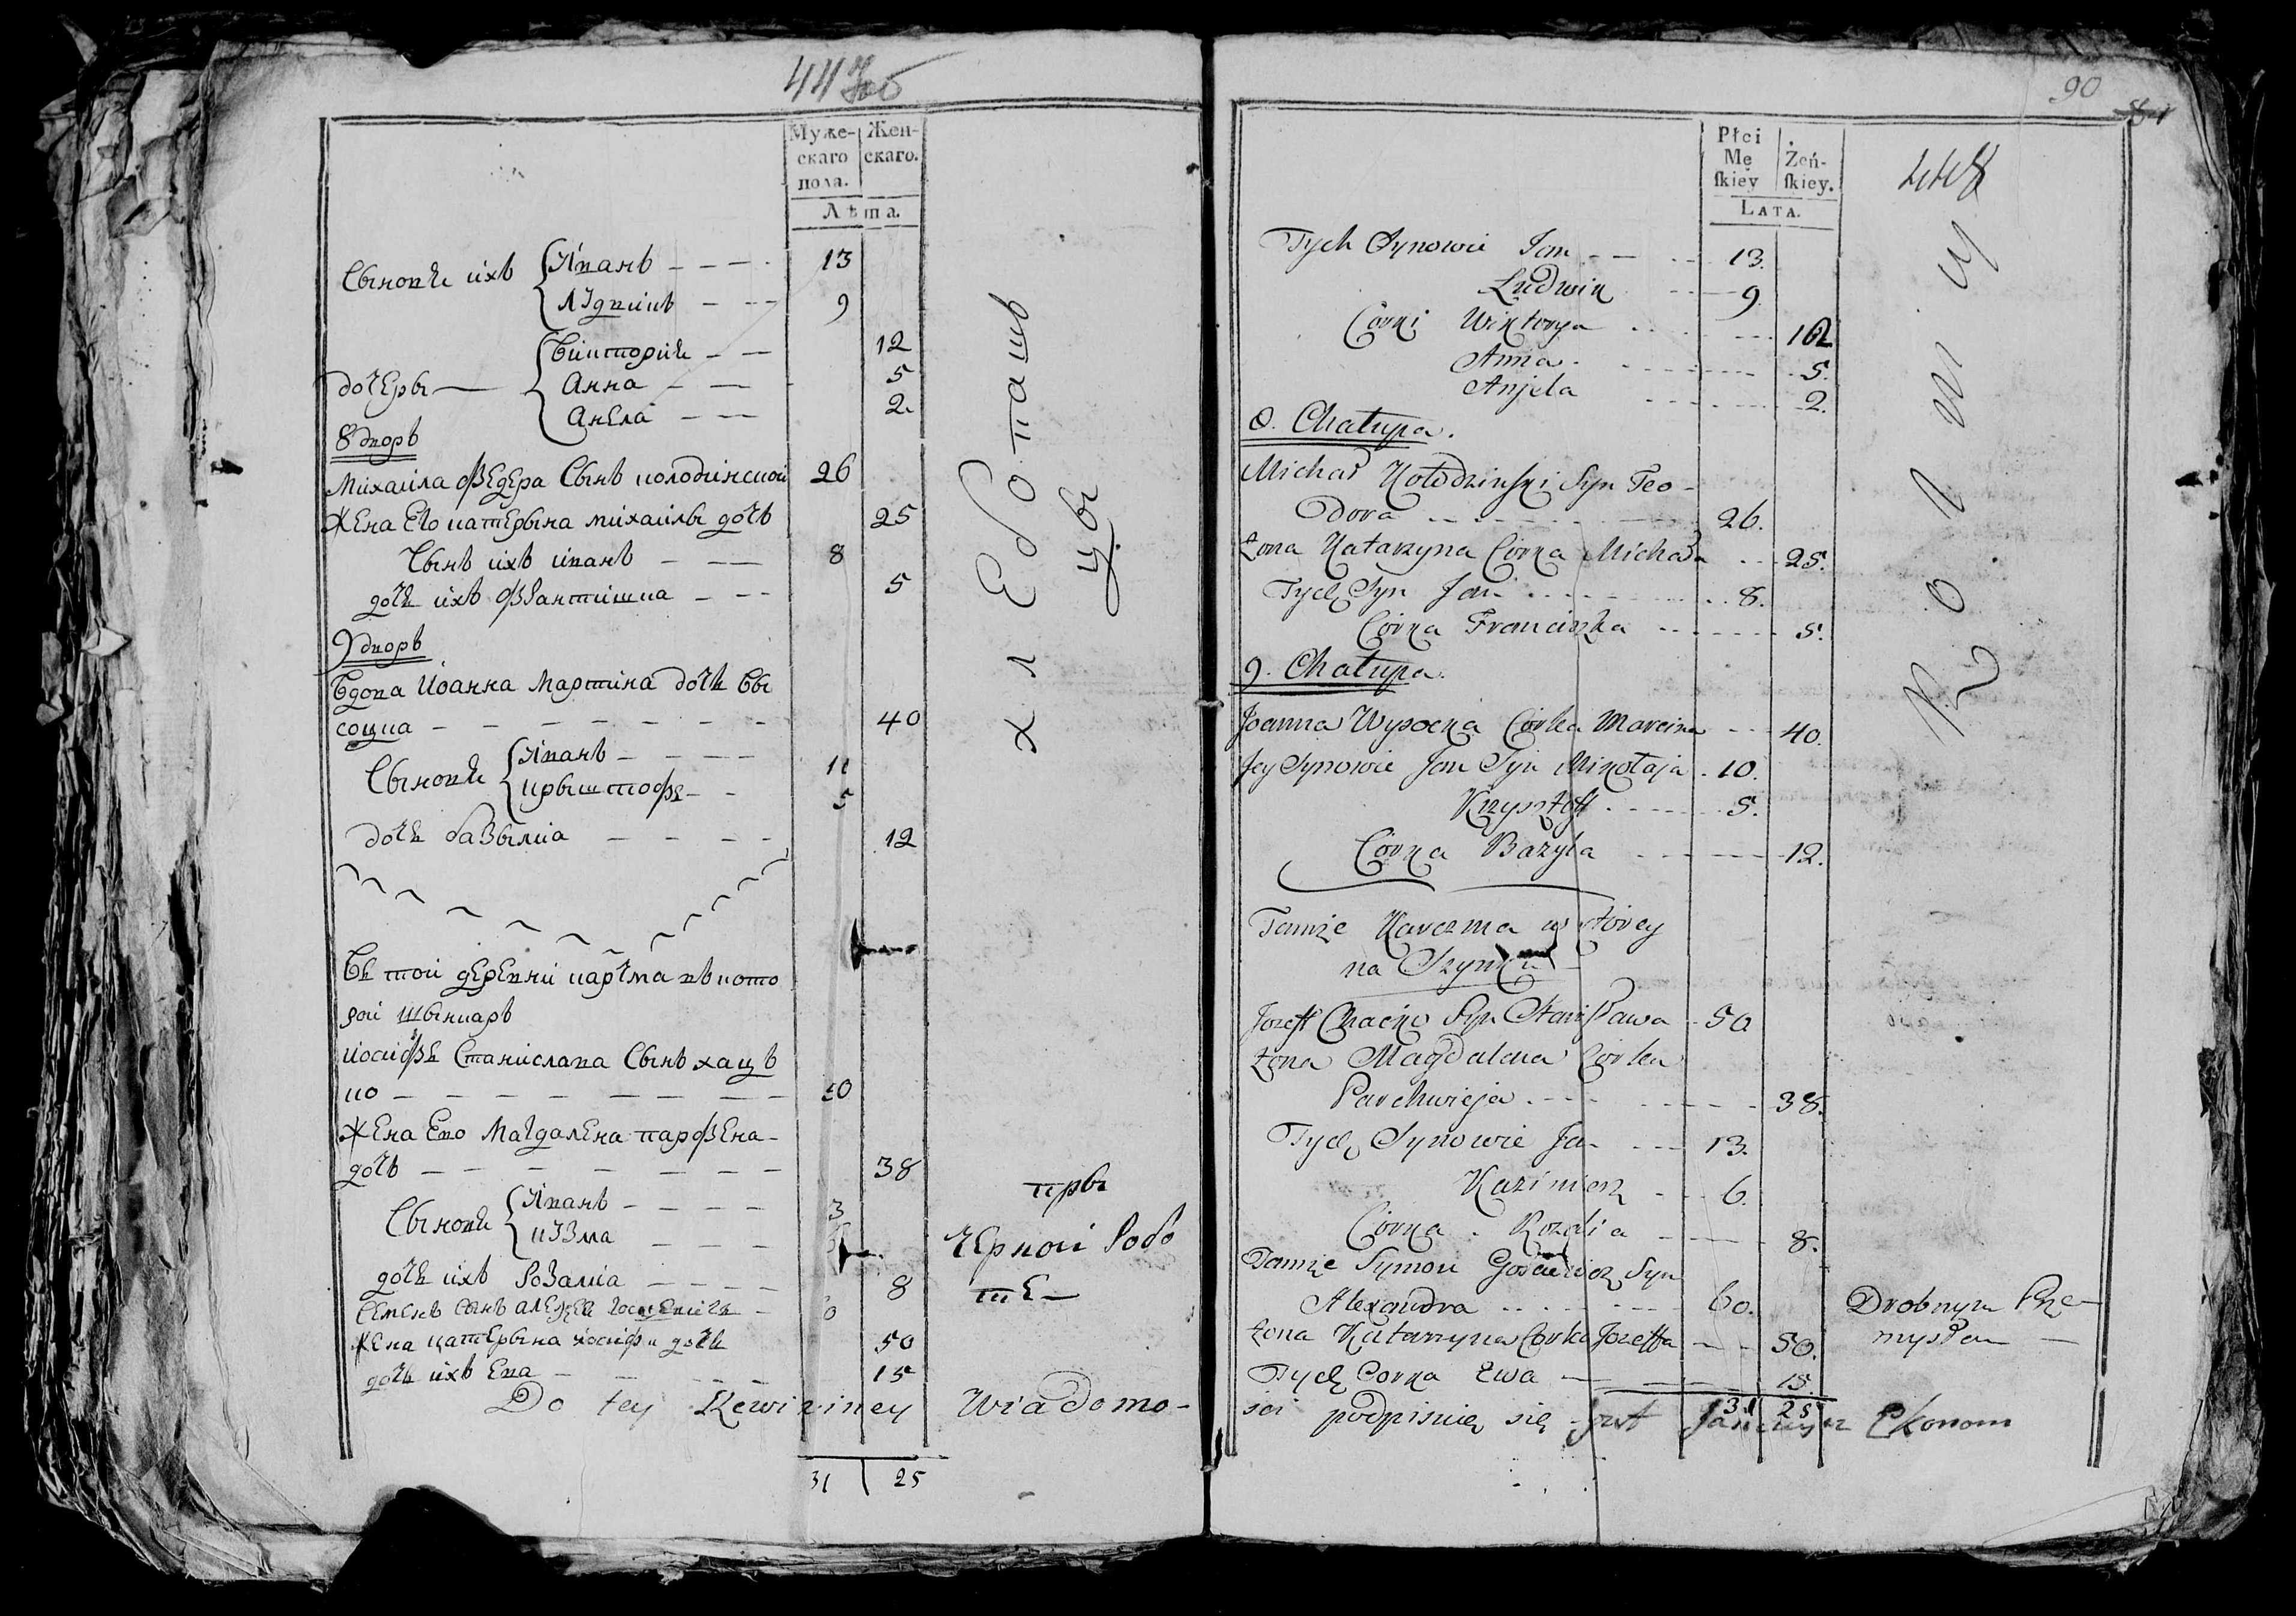 Муже-
скаго
пола.
Жен-
скаго.
Лѣта.
Сыновя ихъ Иванъ 13
Лудвикъ 9
дочеры Викторiя 12
Анна 5
Анела 2
8 дворъ
Михайла Федера Сынъ колодинской 26
жена Его катерына михайлы дочь 25
Сынъ ихъ иванъ 8
дочь ихъ францишка 5
9 дворъ
Вдова Иоанна Мартина дочь Вы
соцка 40
Сыновя Иванъ 11
крыштофъ 5
дочь базылiа 12
Въ той деревни карчма въ кото
рой шынкаръ
иосифъ Станислава Сынъ хацъ
ко 50
жена Его Магдалена парфена
дочь 38
Сыновя Иванъ 3
кузма
дочь ихъ Розалiа 8
Семенъ Сынъ алексея
жена катерына иосифа дочь 50
дочь ихъ Ева 15
31 25
хлебопашцы
пры
черной робо
те
Do tey Rewiziney Wiadomo-
90
Płci
Mę
ſkiey
Żeń-
ſkiey.
LATA.
448
Tych Synowie Jan 13.
Ludwik 9
Corki Wiktorya 12
Anna 5.
Anjela 2.
8. Chałupa.
Michał Kołodzinſki Syn Teo-
dora 26.
Żona Katarzyna Corka Michała 25.
Tych Syn Jan 8.
Corka Franciszka 5.
9. Chałupa.
Joanna Wysocka Corka Marcina 40.
Jey Synowie Jan Syn Mikołaja 10.
Krzysztoff 5.
Corka Bazyla 12.
Tamże Karczma w ktorey
na Szynku
Jozeff Chacko Syn Stanisława 50
Żona Magdalena Corka
Parchwieja 38.
Tych Synowie Jan 13.
Kazimierz 6.
Corka Rozalia 8.
Tamże Symon Syn
Alexandra 60.
Żona Katarzyna Corka Jozeffa 50.
Tych Corka Ewa 15.
31 25
Rolnicy
Drobnym Prze-
mysłem
sci podpisuię się Ekonom